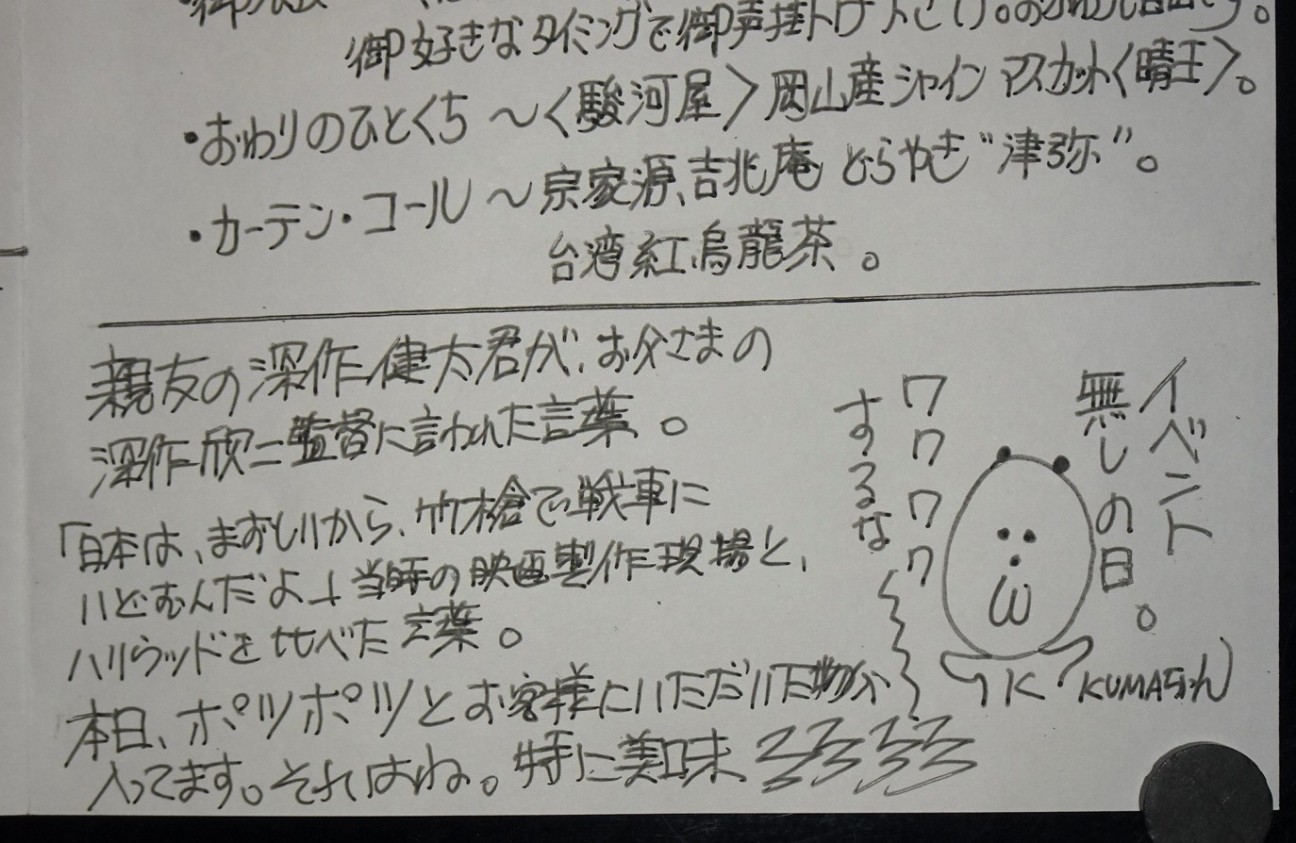 御好きなタイミングで御声掛け下さい。おかわり自由です。
・おわりのひとくち 〜〈駿河屋〉岡山産シャインマスカット〈晴王〉。
・カーテン・コール 〜宗家源、吉兆庵 どらやき“津弥”。
台湾紅烏龍茶。
親友の深作健太君が、お父さまの
深作欣二監督に言われた言葉。
「日本は、まずしいから、竹槍で戦車に
いどむんだよ」当時の映画製作現場と、
ハリウッドを比べた言葉。
本日、ポツポツとお客様にいただいた物が
入ってます。それはね。特に美味
イベント
無しの日。
ワクワク
するな
KUMAちん